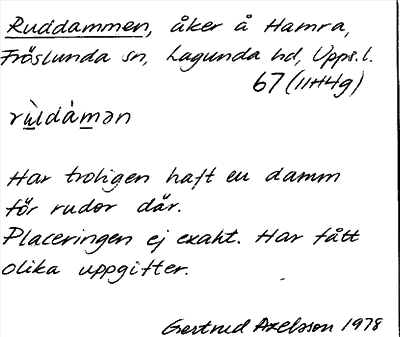 Ruddammen, åker å Hamra,
Fröslunda sn, Lagunda hd, Upps. l.
67 (11H4g)
rùldàmən
Har troligen haft en damm
för rudor där.
Placeringen ej exakt. Har fått
olika uppgifter.
Gertrud Axelsson 1978